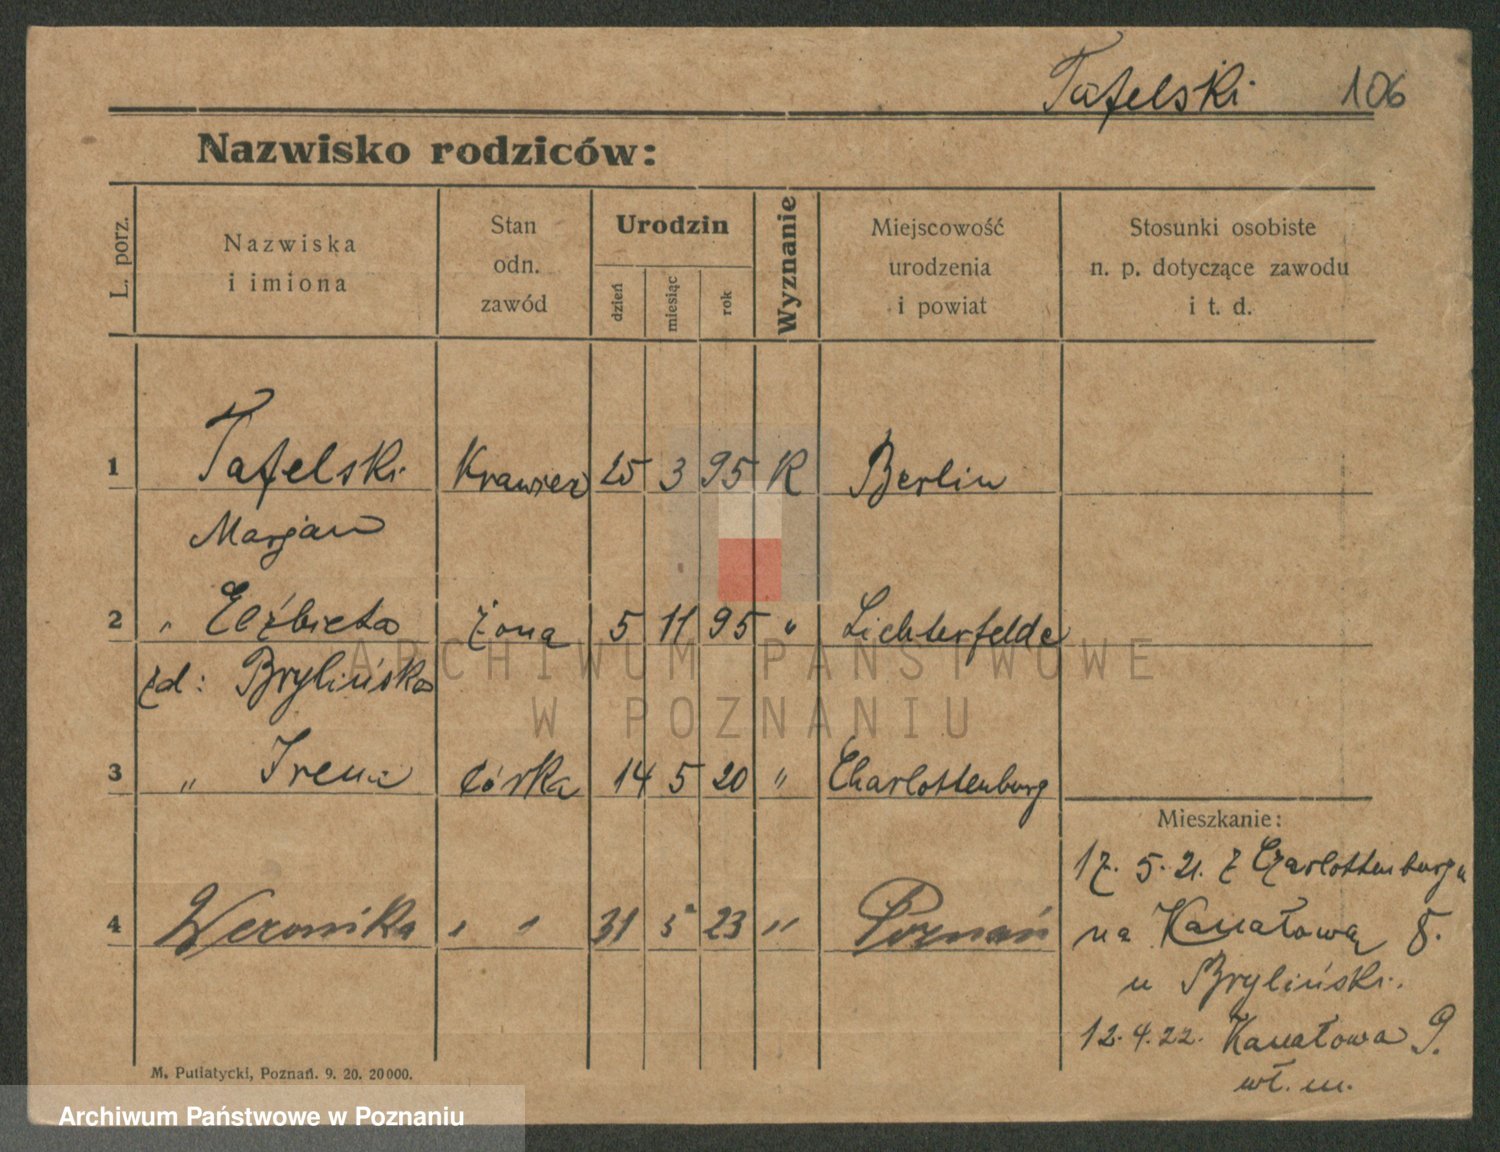 Tafelski 106
Nazwisko rodziców:
L. porz.
Nazwiska
i imiona
Stan
odn.
zawód
Urodzin
dzień
miesiąc
rok
Wyznanie
Miejscowość
urodzenia
i powiat
Stosunki osobiste
n. p. dotyczące zawodu
i t. d.
1 Tafelski Krawiec 25 3 95 R Berlin
Marjan
2 " Elżbieta żona 5 11 95 " Lichterfelde
zd: Brylińska
3 " Irena córka 14 5 20 " Charlottenburg
4 Weronika " " 31 5 23 " Poznań
Mieszkanie:
17. 5. 21. z Czarlottenburga
na Kanałową 8.
u Bryliński.
12. 4. 22. Kanałowa 9.
wł. m.
M. Putiatycki, Poznań. 9. 20. 20000.
ARCHIWUM PAŃSTWOWE
W POZNANIU
Archiwum Państwowe w Poznaniu